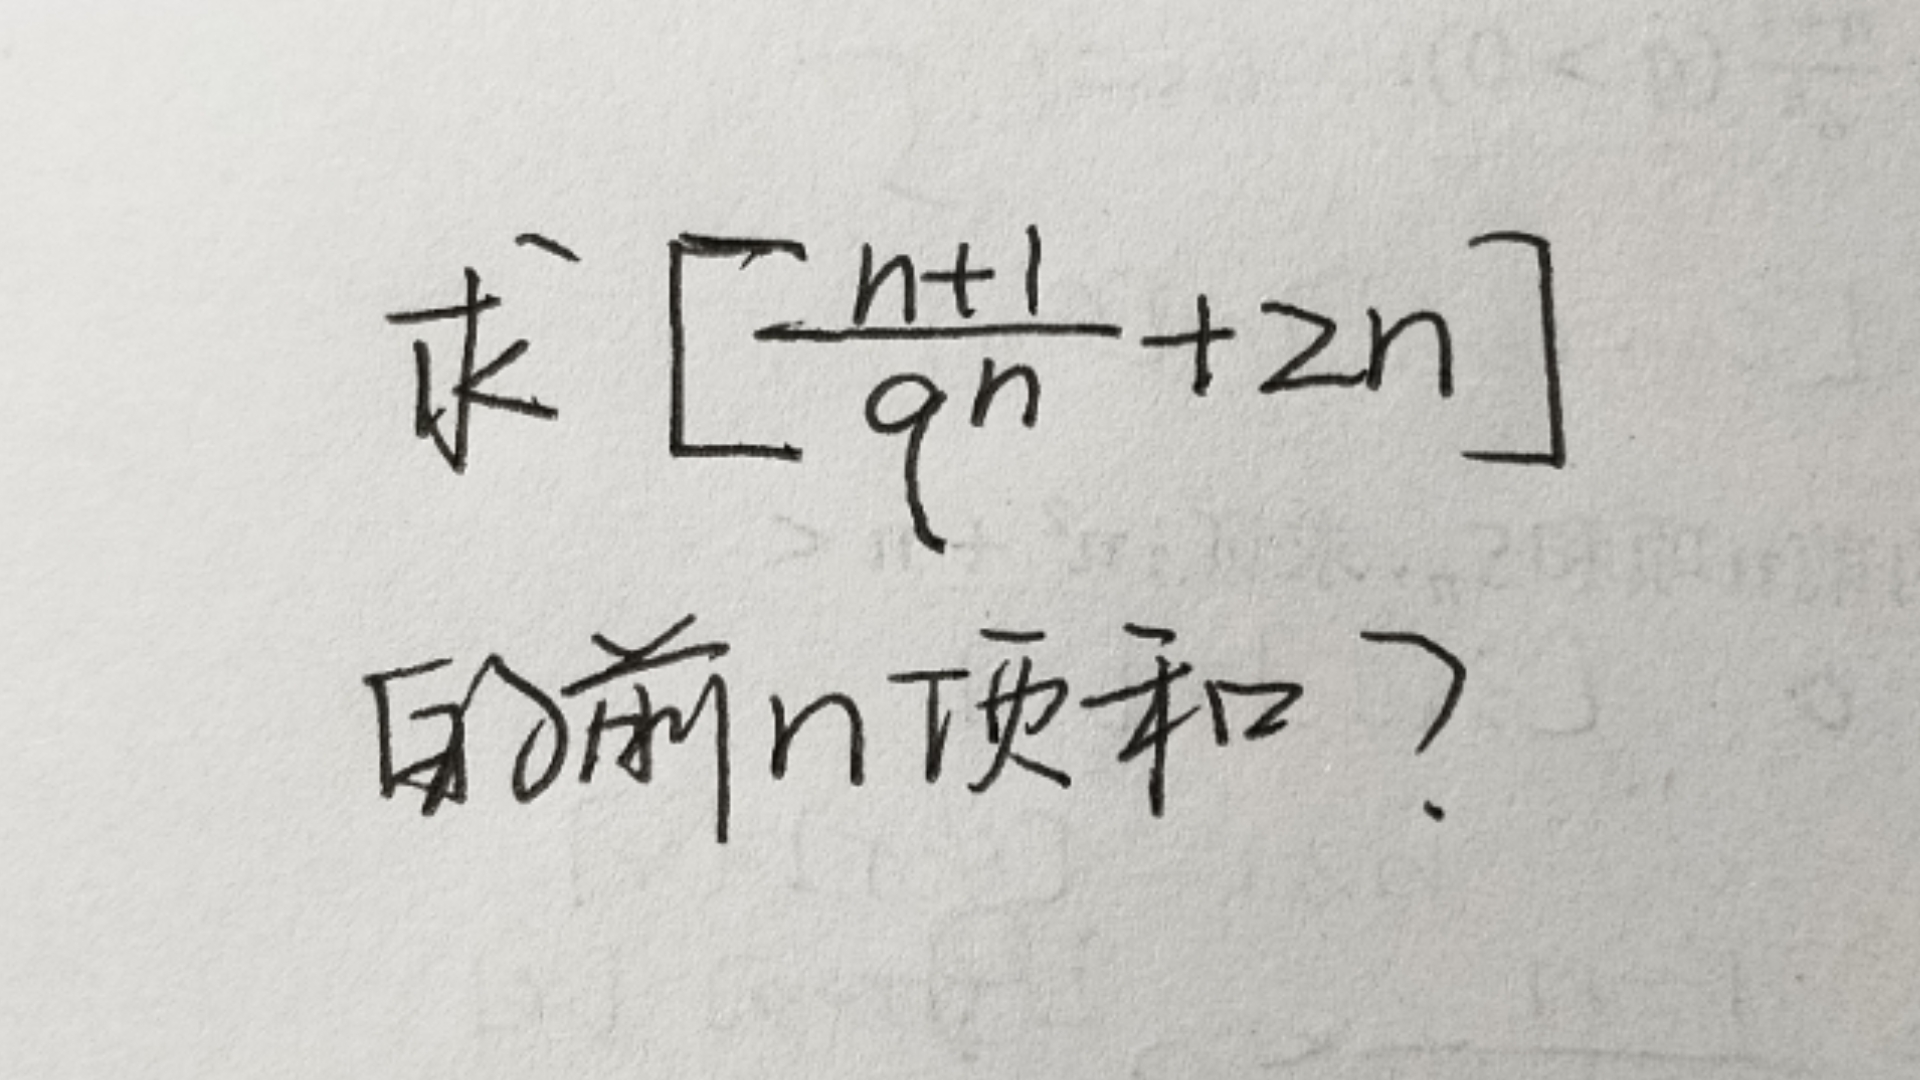 求 [ (n+1)/(q^n) + 2n ]
的前n项和?